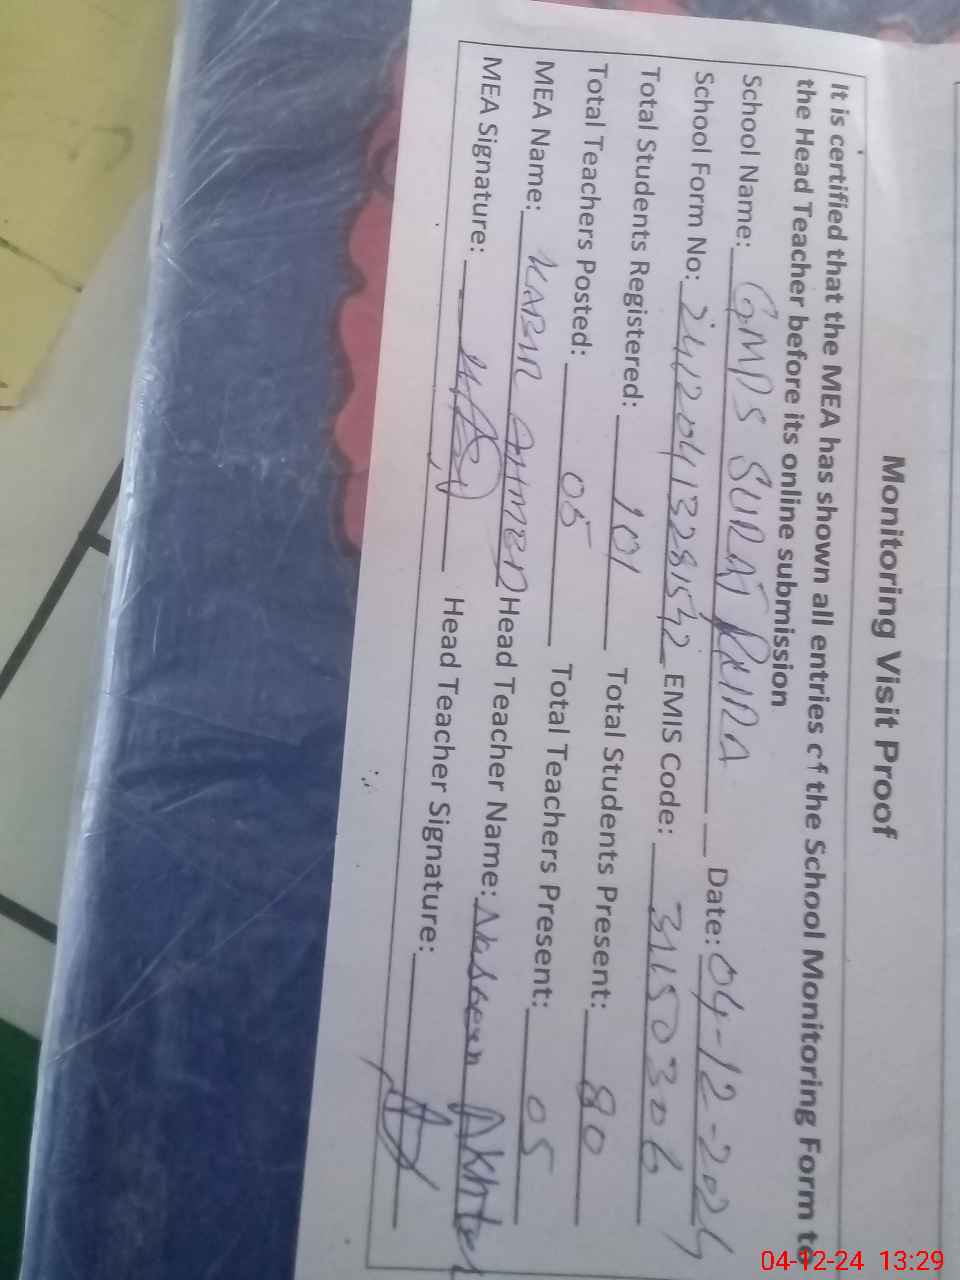 Monitoring Visit Proof
It is certified that the MEA has shown all entries of the School Monitoring Form to
the Head Teacher before its online submission
School Name: GMPS SURAT PURA Date: 04-12-2024
School Form No: 24120413281542 EMIS Code: 31150306
Total Students Registered: 101 Total Students Present: 80
Total Teachers Posted: 05 Total Teachers Present: 05
MEA Name: KABIR AHMED Head Teacher Name: Naseem Akhter
MEA Signature: Head Teacher Signature:
04-12-24 13:29